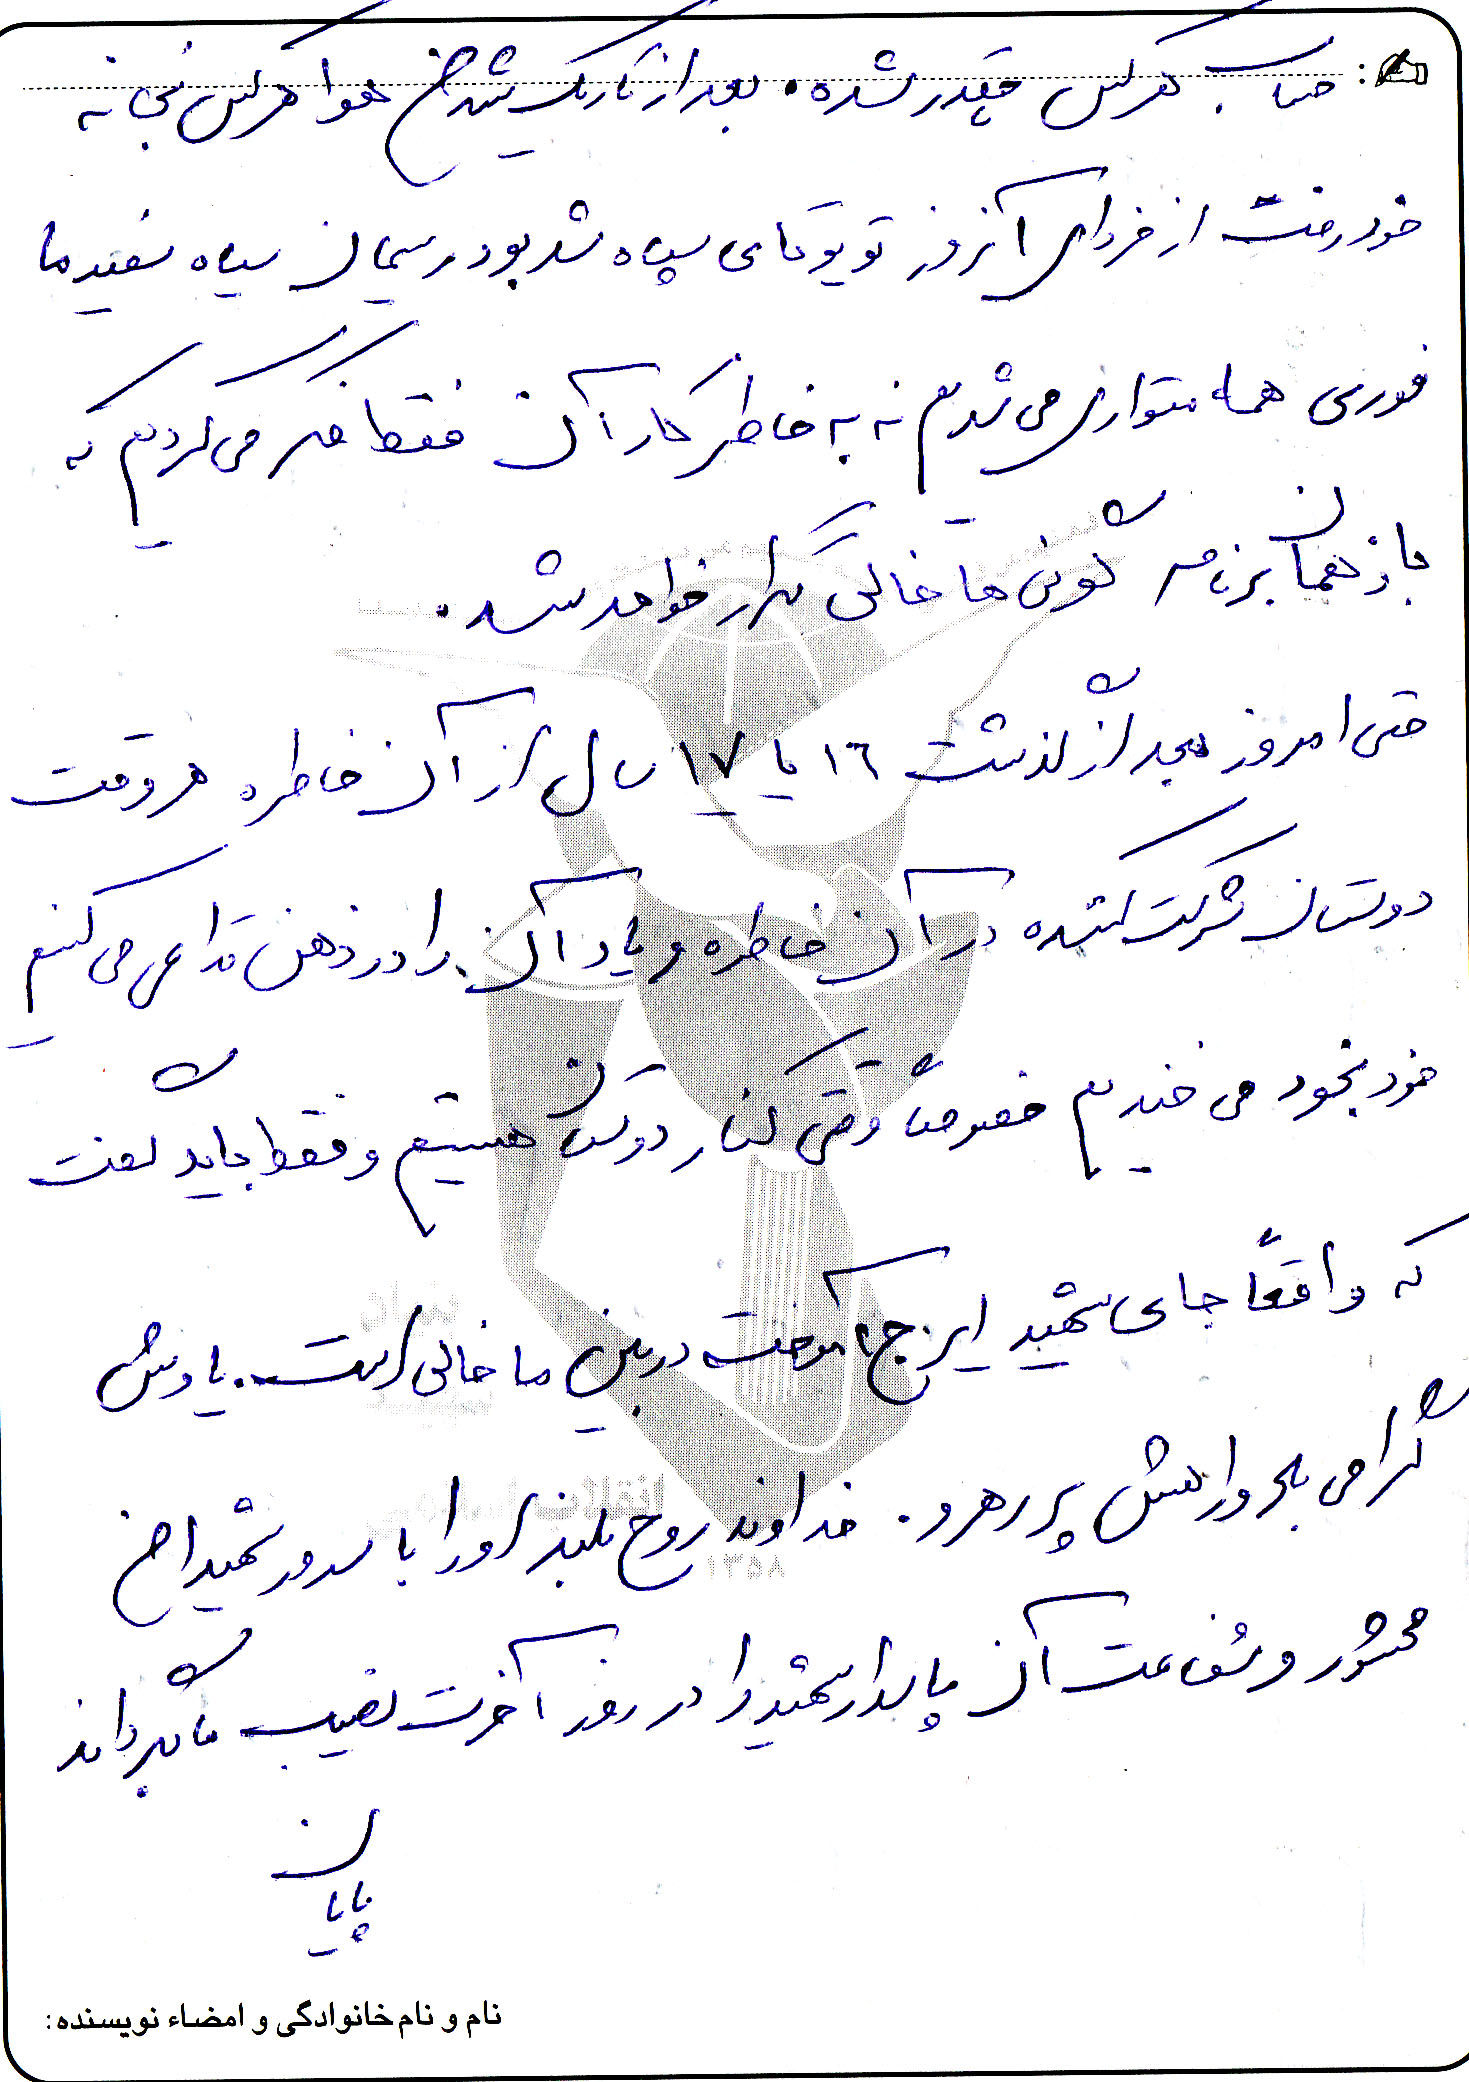 حساب هر کس چقدر شده. بعد از تاریک شدن هوا هر کس بخانه
خود رفت از فردای آنروز تویوتای سپاه شد بود ریسمان سیاه سفید ما
فوری همه متواری می شدیم نه به خاطر کار آن فقط فکر می کردیم که
باز همان برنامه گونی ها خالی تکرار خواهد شد.
حتی امروز بعد از گذشت ۱۶ یا ۱۷ سال از آن خاطره هر وقت
دوستان شرکت کننده در آن خاطره و یاد آن را در ذهن تداعی می کنیم
خود بخود می خندیم خصوصاً وقتی کنار دوستان هستیم و فقط باید گفت
که واقعاً جای شهید ایرج آموخته در بین ما خالی است. یادش
گرامی باد و راهش پر رهرو. خداوند روح بلند او را با سرور شهیدان
محشور و شفاعت آن پاسدار شهید را در روز آخرت نصیب ما بگرداند
پایان
نام و نام خانوادگی و امضاء نویسنده:
۱۳۵۸